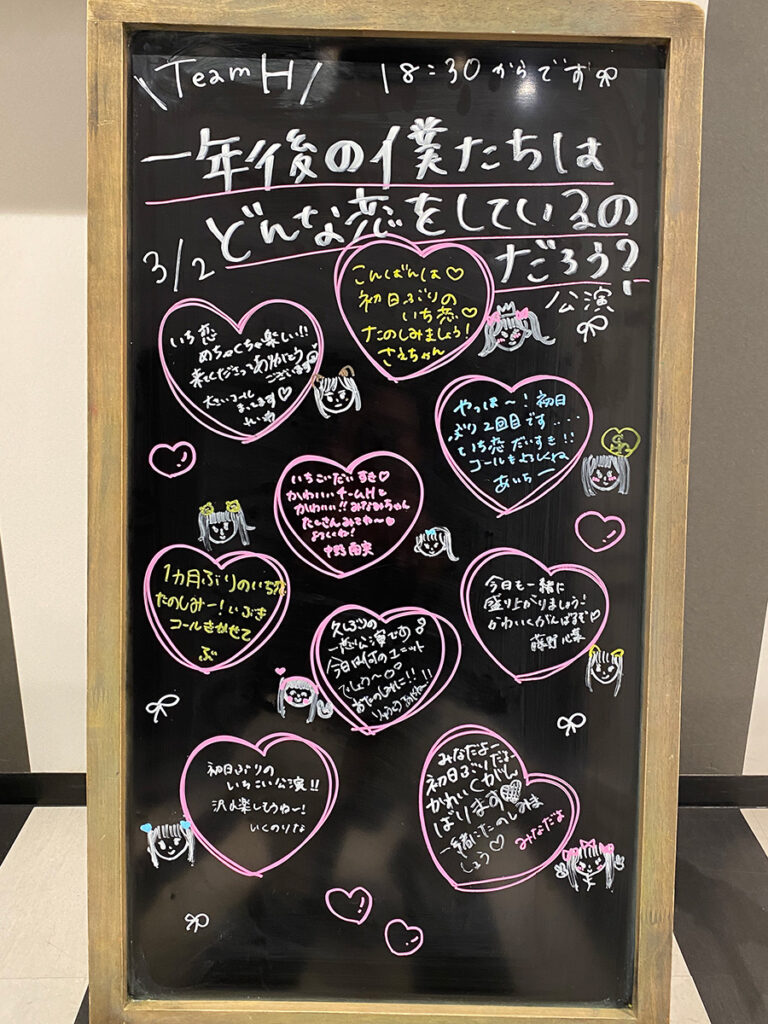 \TeamH/ 18:30からです
一年後の僕たちは
どんな恋をしているの
だろう?
3/2
公演
こんばんは♡
初日ぶりの
いち恋♡
たのしみましょう!
さえちゃん
いち恋
めちゃくちゃ楽しい!!
来てくださってありがとう
ございます
大きいコール
まってます♡
やっほ〜!初日
ぶり2回目です....
いち恋だいすき!!
コールもよろしくね
あいちー
いちごいだいすき♡
かわいいチームHと
かわいい!!みなみちゃん
たくさんみてねー♡
中野南実
1ヵ月ぶりのいち恋
たのしみー!いぶき
コールきかせて
ぶ
今日も一緒に
盛り上がりましょう!
かわいくがんばるぞ♡
藤野心葉
久しぶりの
一恋公演です
今日は何のユニット
でしょう〜
おたのしみに!!
初日ぶりの
いちこい公演!!
沢山楽しもうねー!
いくのりな
みなだよー
初日ぶりだよー
かわいくがん
ばります
一緒にたのしみま
しょう♡
みなだよ